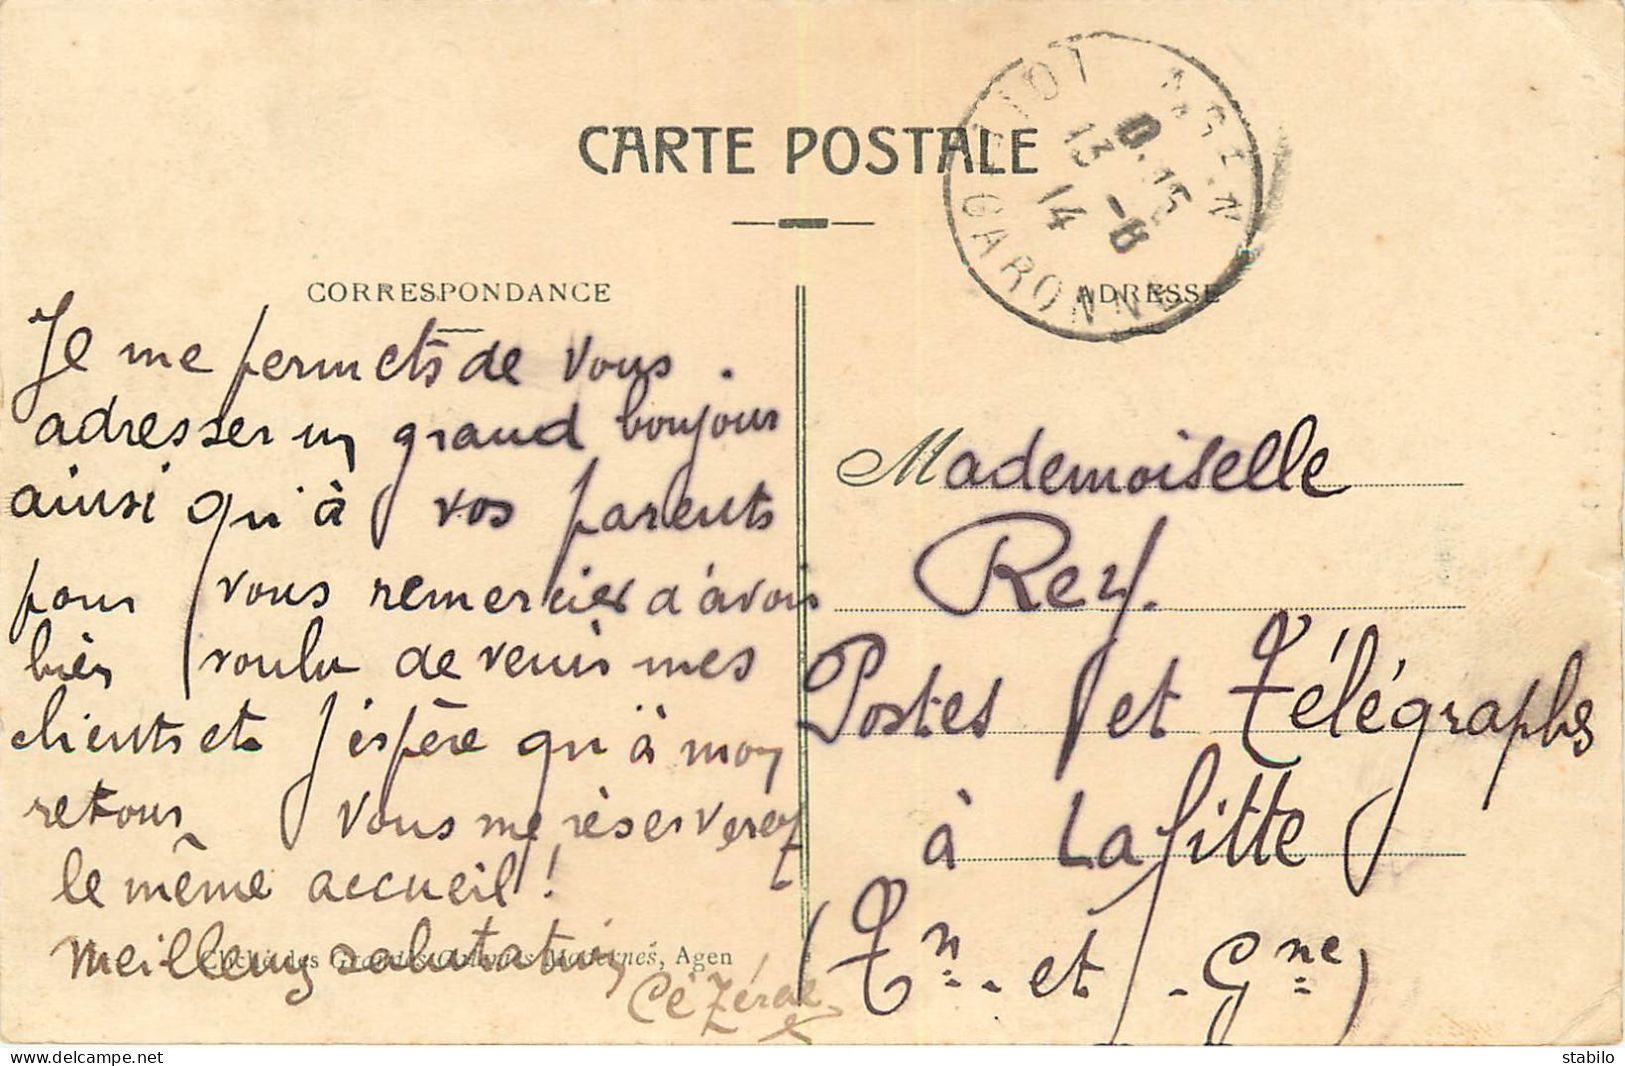 CARTE POSTALE
CORRESPONDANCE
ADRESSE
LOT
AGEN
GARONNE
13 -8
14
Je me permets de vous
adresser un grand bonjour
ainsi qu'à vos parents
pour vous remercier d'avoir
bien voulu devenir mes
clients et j'espère qu'à mon
retour vous me réserverez
le même accueil !
Meilleures salutations
des Grandes Galeries Modernes, Agen
Mademoiselle
Rey.
Postes et Télégraphes
à Lafitte
(Tn. et Gne)
stabilo